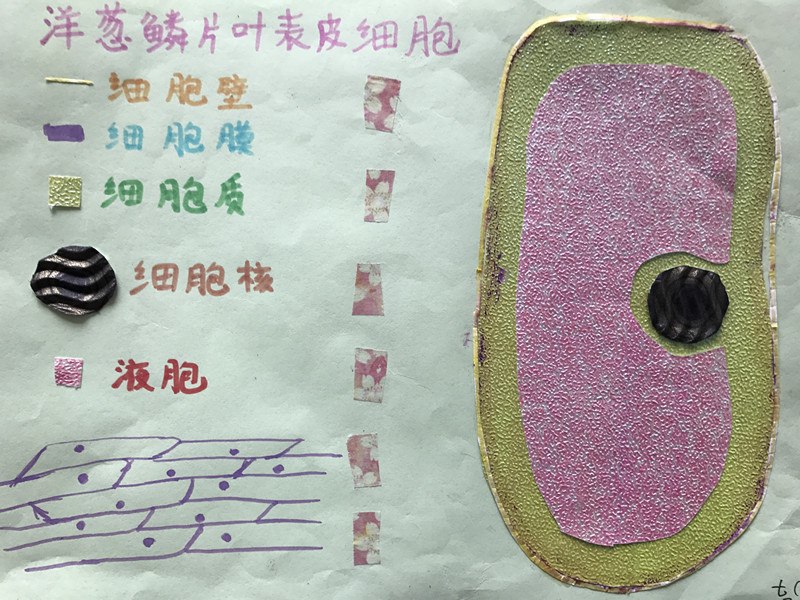 洋葱鳞片叶表皮细胞
细胞壁
细胞膜
细胞质
细胞核
液胞